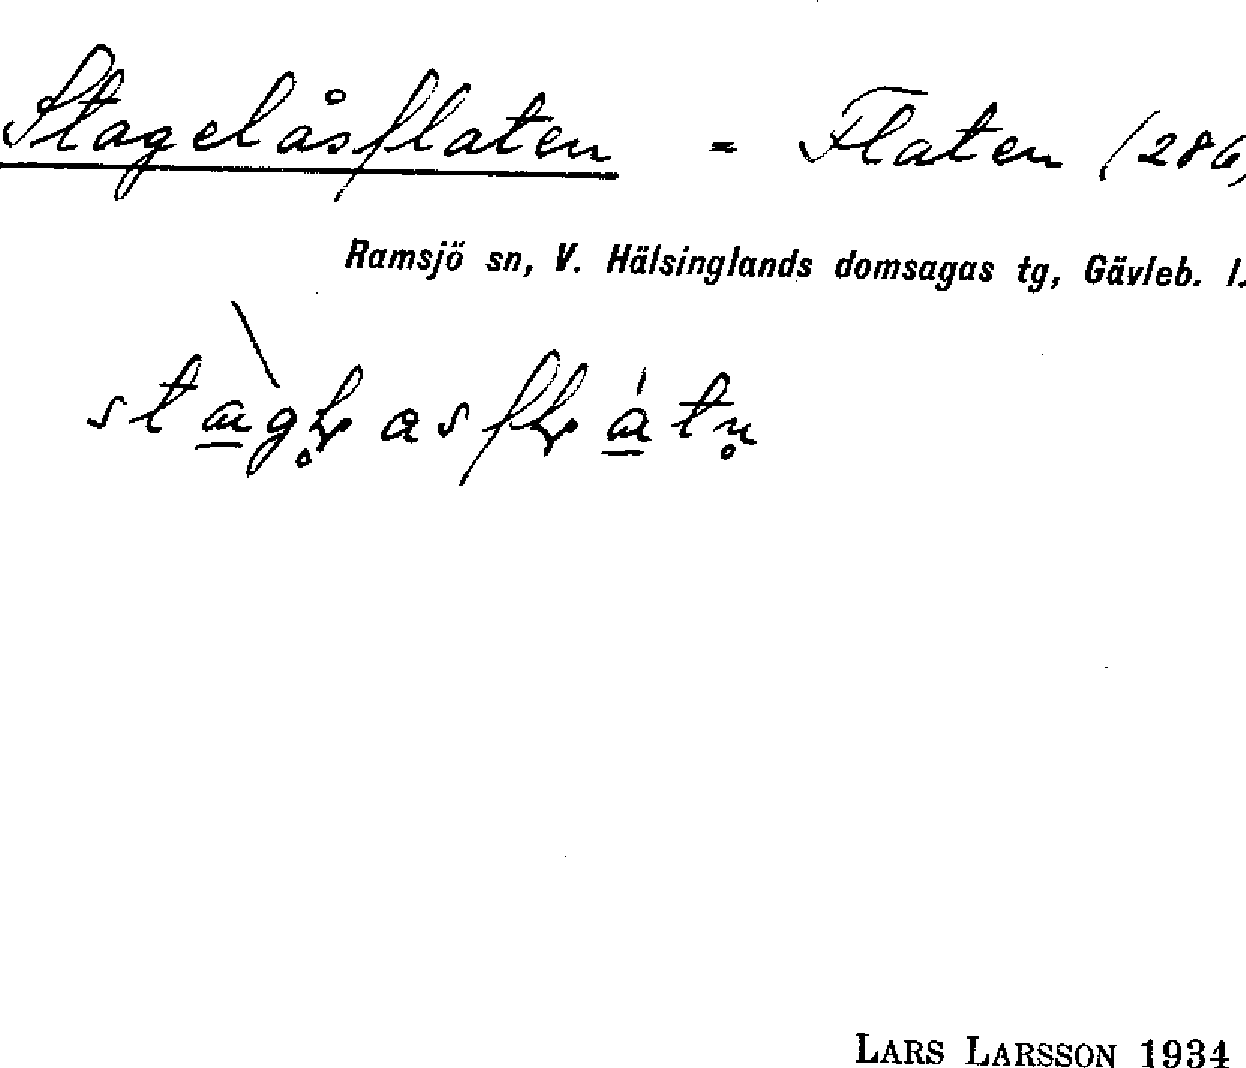 Stagelåsflaten = Flaten (286)
Ramsjö sn, V. Hälsinglands domsagas tg, Gävleb. l.
LARS LARSSON 1934